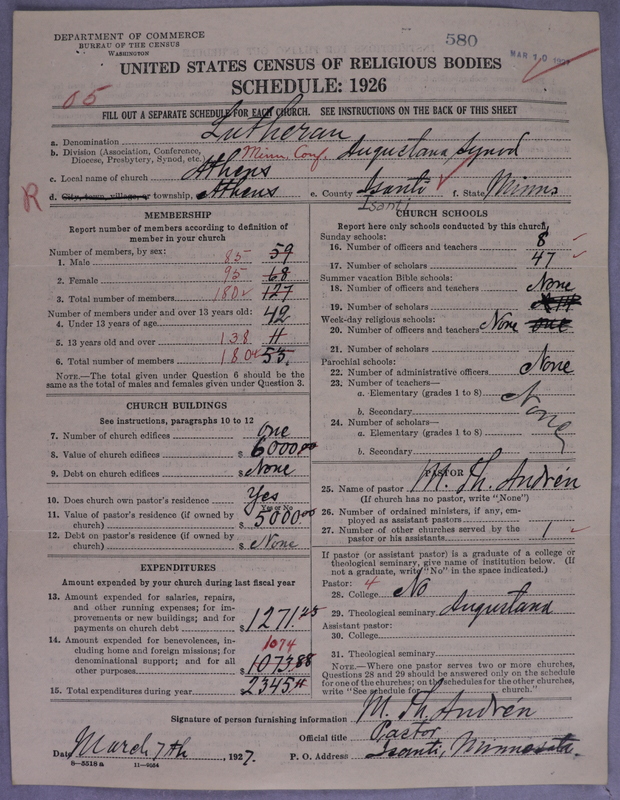 DEPARTMENT OF COMMERCE
BUREAU OF THE CENSUS
WASHINGTON
580
MAR 10 1927
UNITED STATES CENSUS OF RELIGIOUS BODIES
SCHEDULE: 1926
05
FILL OUT A SEPARATE SCHEDULE FOR EACH CHURCH. SEE INSTRUCTIONS ON THE BACK OF THIS SHEET
a. Denomination Lutheran
b. Division (Association, Conference, Diocese, Presbytery, Synod, etc.) Minn. Conf. Augustana Synod
c. Local name of church Athens
R
d. City, town, village, or township, Athens e. County Isanti f. State Minns
Isanti
MEMBERSHIP
Report number of members according to definition of
member in your church
Number of members, by sex:
1. Male 85 59
2. Female 95 68
3. Total number of members 180 127
Number of members under and over 13 years old:
4. Under 13 years of age 42
5. 13 years old and over 138 11
6. Total number of members 180 53
NOTE.—The total given under Question 6 should be the
same as the total of males and females given under Question 3.
CHURCH BUILDINGS
See instructions, paragraphs 10 to 12
7. Number of church edifices one
8. Value of church edifices $ 6000.00
9. Debt on church edifices $ None
10. Does church own pastor's residence Yes
Yes or No
11. Value of pastor's residence (if owned by
church) $ 5000.00
12. Debt on pastor's residence (if owned by
church) $ None
EXPENDITURES
Amount expended by your church during last fiscal year
13. Amount expended for salaries, repairs,
and other running expenses; for im-
provements or new buildings; and for
payments on church debt $ 1271.45
14. Amount expended for benevolences, in-
cluding home and foreign missions; for
denominational support; and for all
other purposes 1074 $ 1073.88
15. Total expenditures during year $ 2345
CHURCH SCHOOLS
Report here only schools conducted by this church
Sunday schools:
16. Number of officers and teachers 8
17. Number of scholars 47
Summer vacation Bible schools:
18. Number of officers and teachers None
19. Number of scholars
Week-day religious schools:
20. Number of officers and teachers None one
21. Number of scholars
Parochial schools:
22. Number of administrative officers None
23. Number of teachers—
a. Elementary (grades 1 to 8) None
b. Secondary
24. Number of scholars—
a. Elementary (grades 1 to 8)
b. Secondary
PASTOR
25. Name of pastor M. Th. Andrén
(If church has no pastor, write "None")
26. Number of ordained ministers, if any, em-
ployed as assistant pastors
27. Number of other churches served by the
pastor or his assistants 1
If pastor (or assistant pastor) is a graduate of a college or
theological seminary, give name of institution below. (If
not a graduate, write "No" in the space indicated.)
Pastor: 4
28. College No
29. Theological seminary Augustana
Assistant pastor:
30. College
31. Theological seminary
NOTE.—Where one pastor serves two or more churches,
Questions 28 and 29 should be answered only on the schedule
for one of the churches; on the schedules for the other churches,
write "See schedule for church."
Signature of person furnishing information M. Th. Andrén
Official title Pastor
Date March 7th, 1927. P. O. Address Isanti, Minnesota.
8-5518a 11-9054